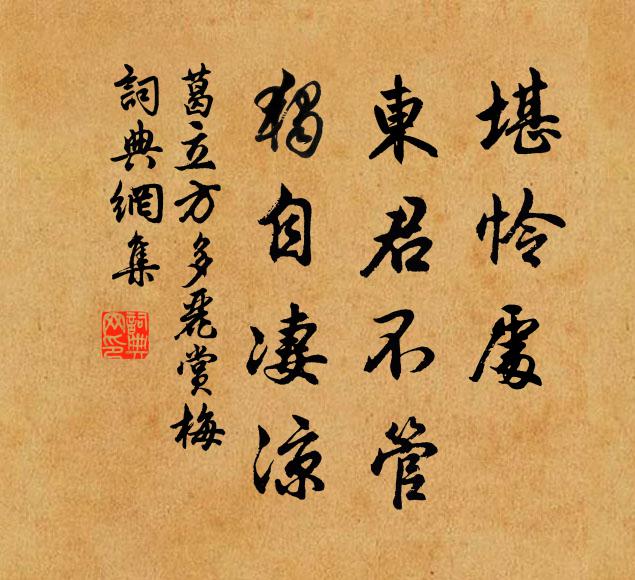 堪怜處
東君不管
獨自凄涼
葛立方多麗賞梅
詞典網集
詞典网印